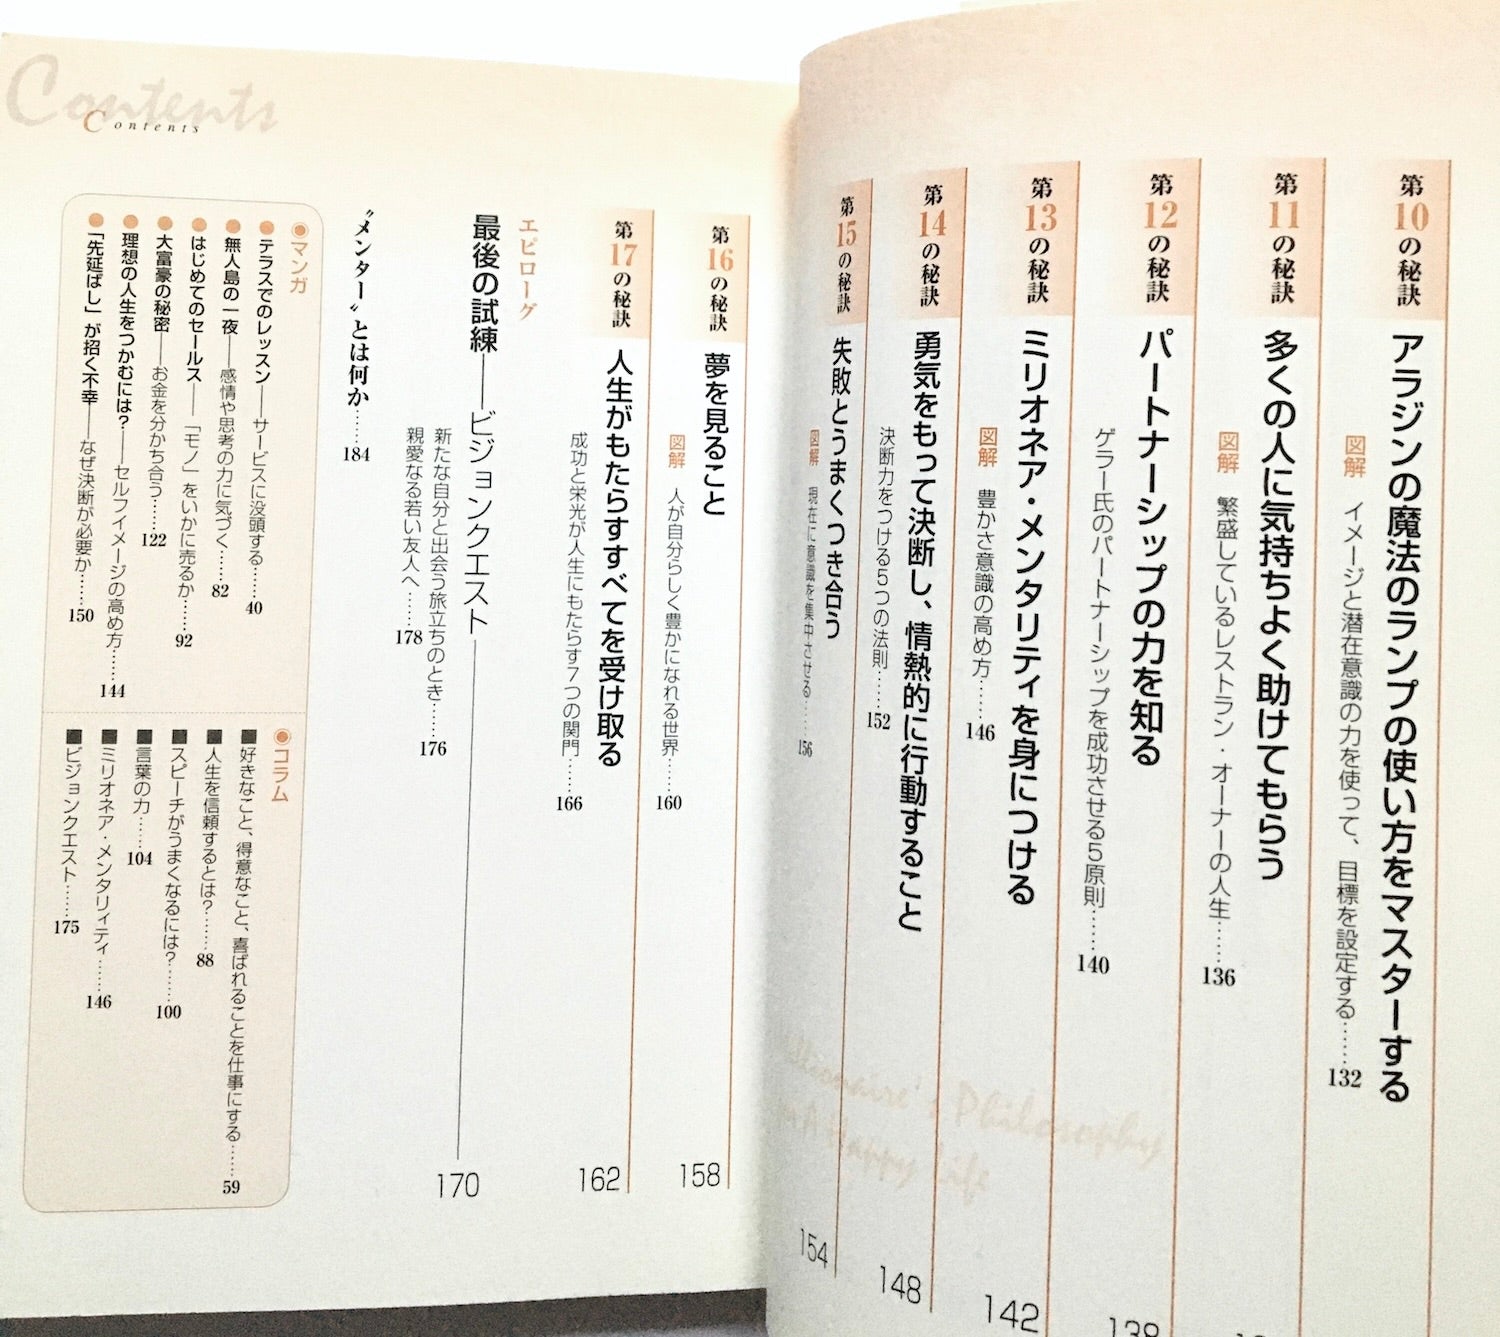 第10の秘訣
アラジンの魔法のランプの使い方をマスターする
図解 イメージと潜在意識の力を使って、目標を設定する……132
第11の秘訣
多くの人に気持ちよく助けてもらう
図解 繁盛しているレストラン・オーナーの人生……136
第12の秘訣
パートナーシップの力を知る
138
ゲラー氏のパートナーシップを成功させる5原則……140
第13の秘訣
ミリオネア・メンタリティを身につける
142
図解 豊かさ意識の高め方……146
第14の秘訣
勇気をもって決断し、情熱的に行動すること
148
決断力をつける5つの法則……152
第15の秘訣
失敗とうまくつき合う
154
図解 現在に意識を集中させる……156
Millionaire's Philosophy
A Happy Life
Contents
Contents
第16の秘訣
夢を見ること
158
図解 人が自分らしく豊かになれる世界……160
第17の秘訣
人生がもたらすすべてを受け取る
162
成功と栄光が人生にもたらす7つの関門……166
エピローグ
最後の試練――ビジョンクエスト
170
新たな自分と出会う旅立ちのとき……176
親愛なる若い友人へ……178
〝メンター〟とは何か……184
◉マンガ
●テラスでのレッスン――サービスに没頭する……40
●無人島の一夜――感情や思考の力に気づく……82
●はじめてのセールス――「モノ」をいかに売るか……92
●大富豪の秘密――お金を分かち合う……122
●理想の人生をつかむには?――セルフイメージの高め方……144
●「先延ばし」が招く不幸――なぜ決断が必要か……150
◉コラム
■好きなこと、得意なこと、喜ばれることを仕事にする……59
■人生を信頼するとは?……88
■スピーチがうまくなるには?……100
■言葉の力……104
■ミリオネア・メンタリィティ……146
■ビジョンクエスト……175